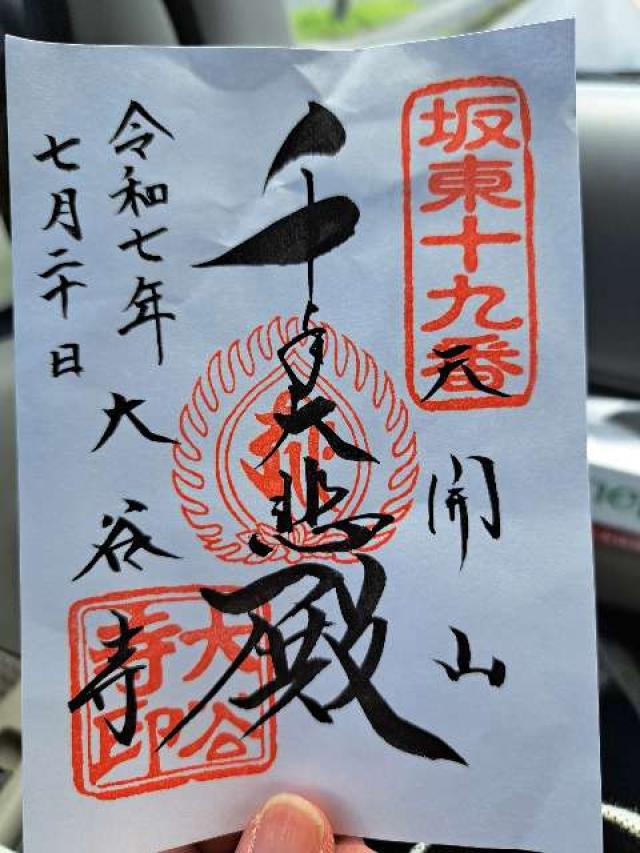 坂東十九番
天開山
千手大悲殿
大谷寺
大谷寺印
令和七年
七月二十日